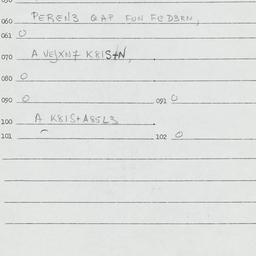 060 PEREN3 QAP FUN FEDBRN,
061 0
070 A VEJXN7 K81S+N,
080 0
090 0 091 0
100 A K81S+A85L3
101 102 0